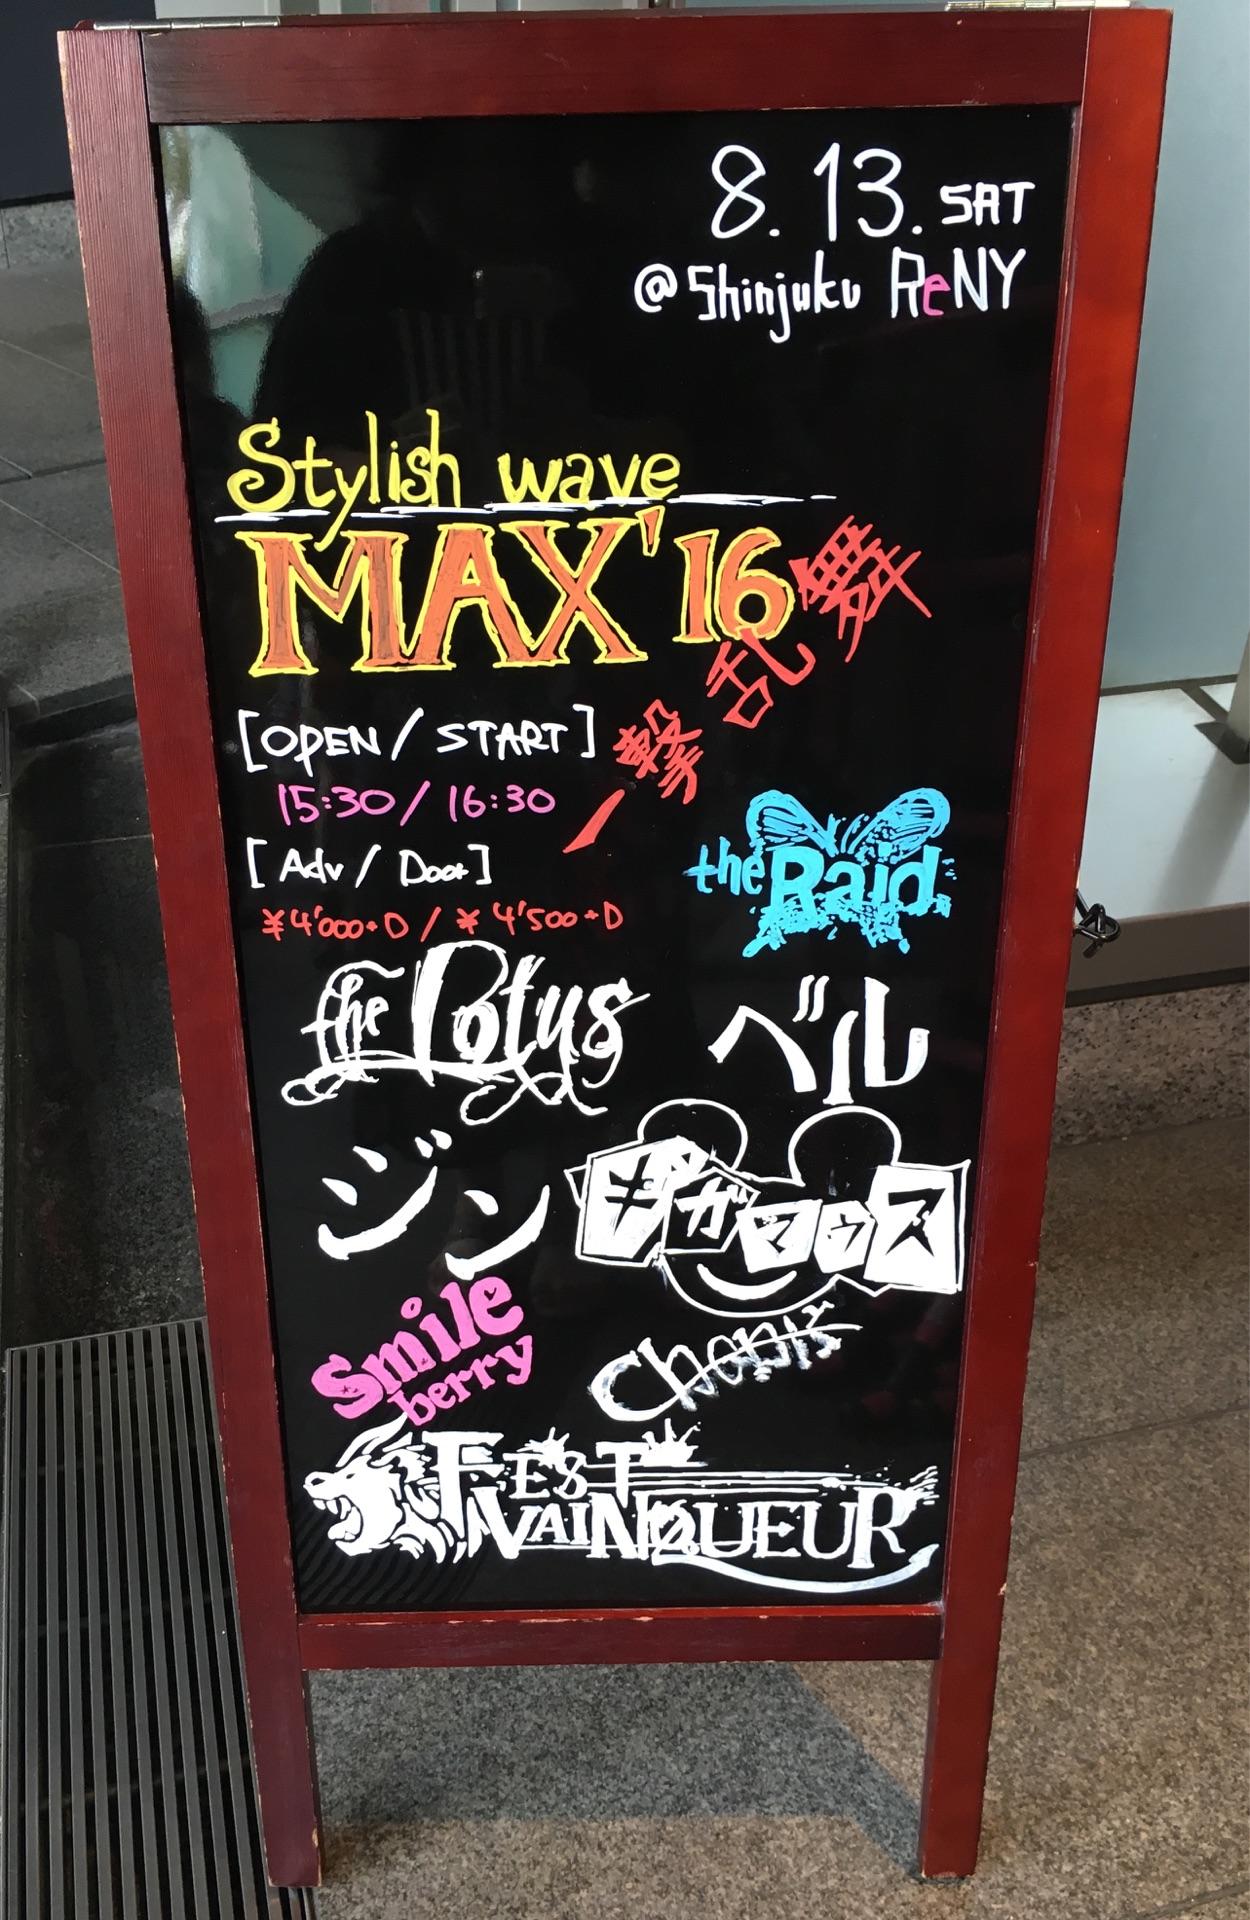 8. 13. SAT
@ Shinjuku ReNY
Stylish wave
MAX'16
一撃乱舞
[OPEN / START]
15:30 / 16:30
[Adv / Door]
¥4'000+D / ¥4'500+D
the Raid.
the Lotus
ベル
ジン
ギガマウス
Smile berry
Chanty
FEST VAINQUEUR